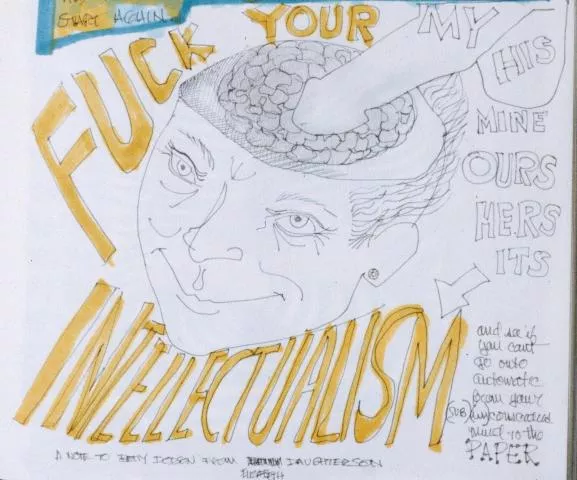 START AGAIN
FUCK YOUR
MY
HIS
MINE
OURS
HERS
ITS
INTELLECTUALISM
and see if
you can't
go onto
automatic
from your
(SUB) unconscious
mind to the
PAPER
A NOTE TO BETTY DODSON FROM DAUGHTERSON